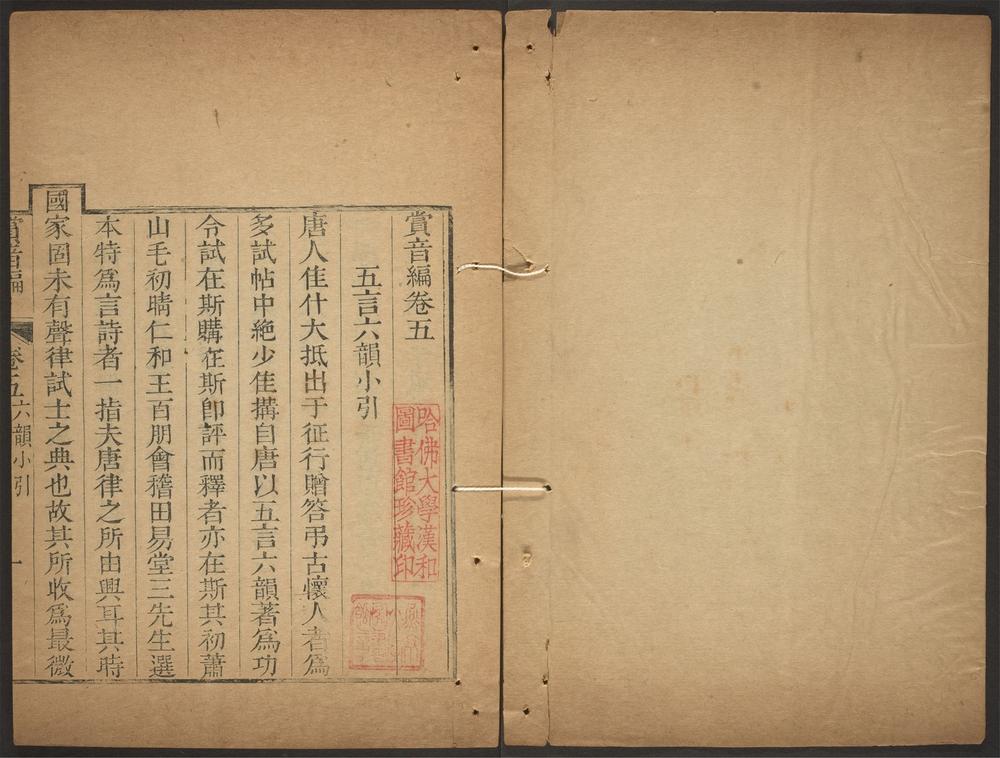 賞音編卷五
五言六韻小引
唐人佳什大抵出于征行贈答弔古懷人者爲
多試帖中絶少佳搆自唐以五言六韻著爲功
令試在斯購在斯卽評而釋者亦在斯其初蕭
山毛初晴仁和王百朋會稽田易堂三先生選
本特爲言詩者一指夫唐律之所由興耳其時
國家固未有聲律試士之典也故其所收爲最微
賞音編 卷五 六韻小引 一
哈佛大學漢和
圖書館珍藏印